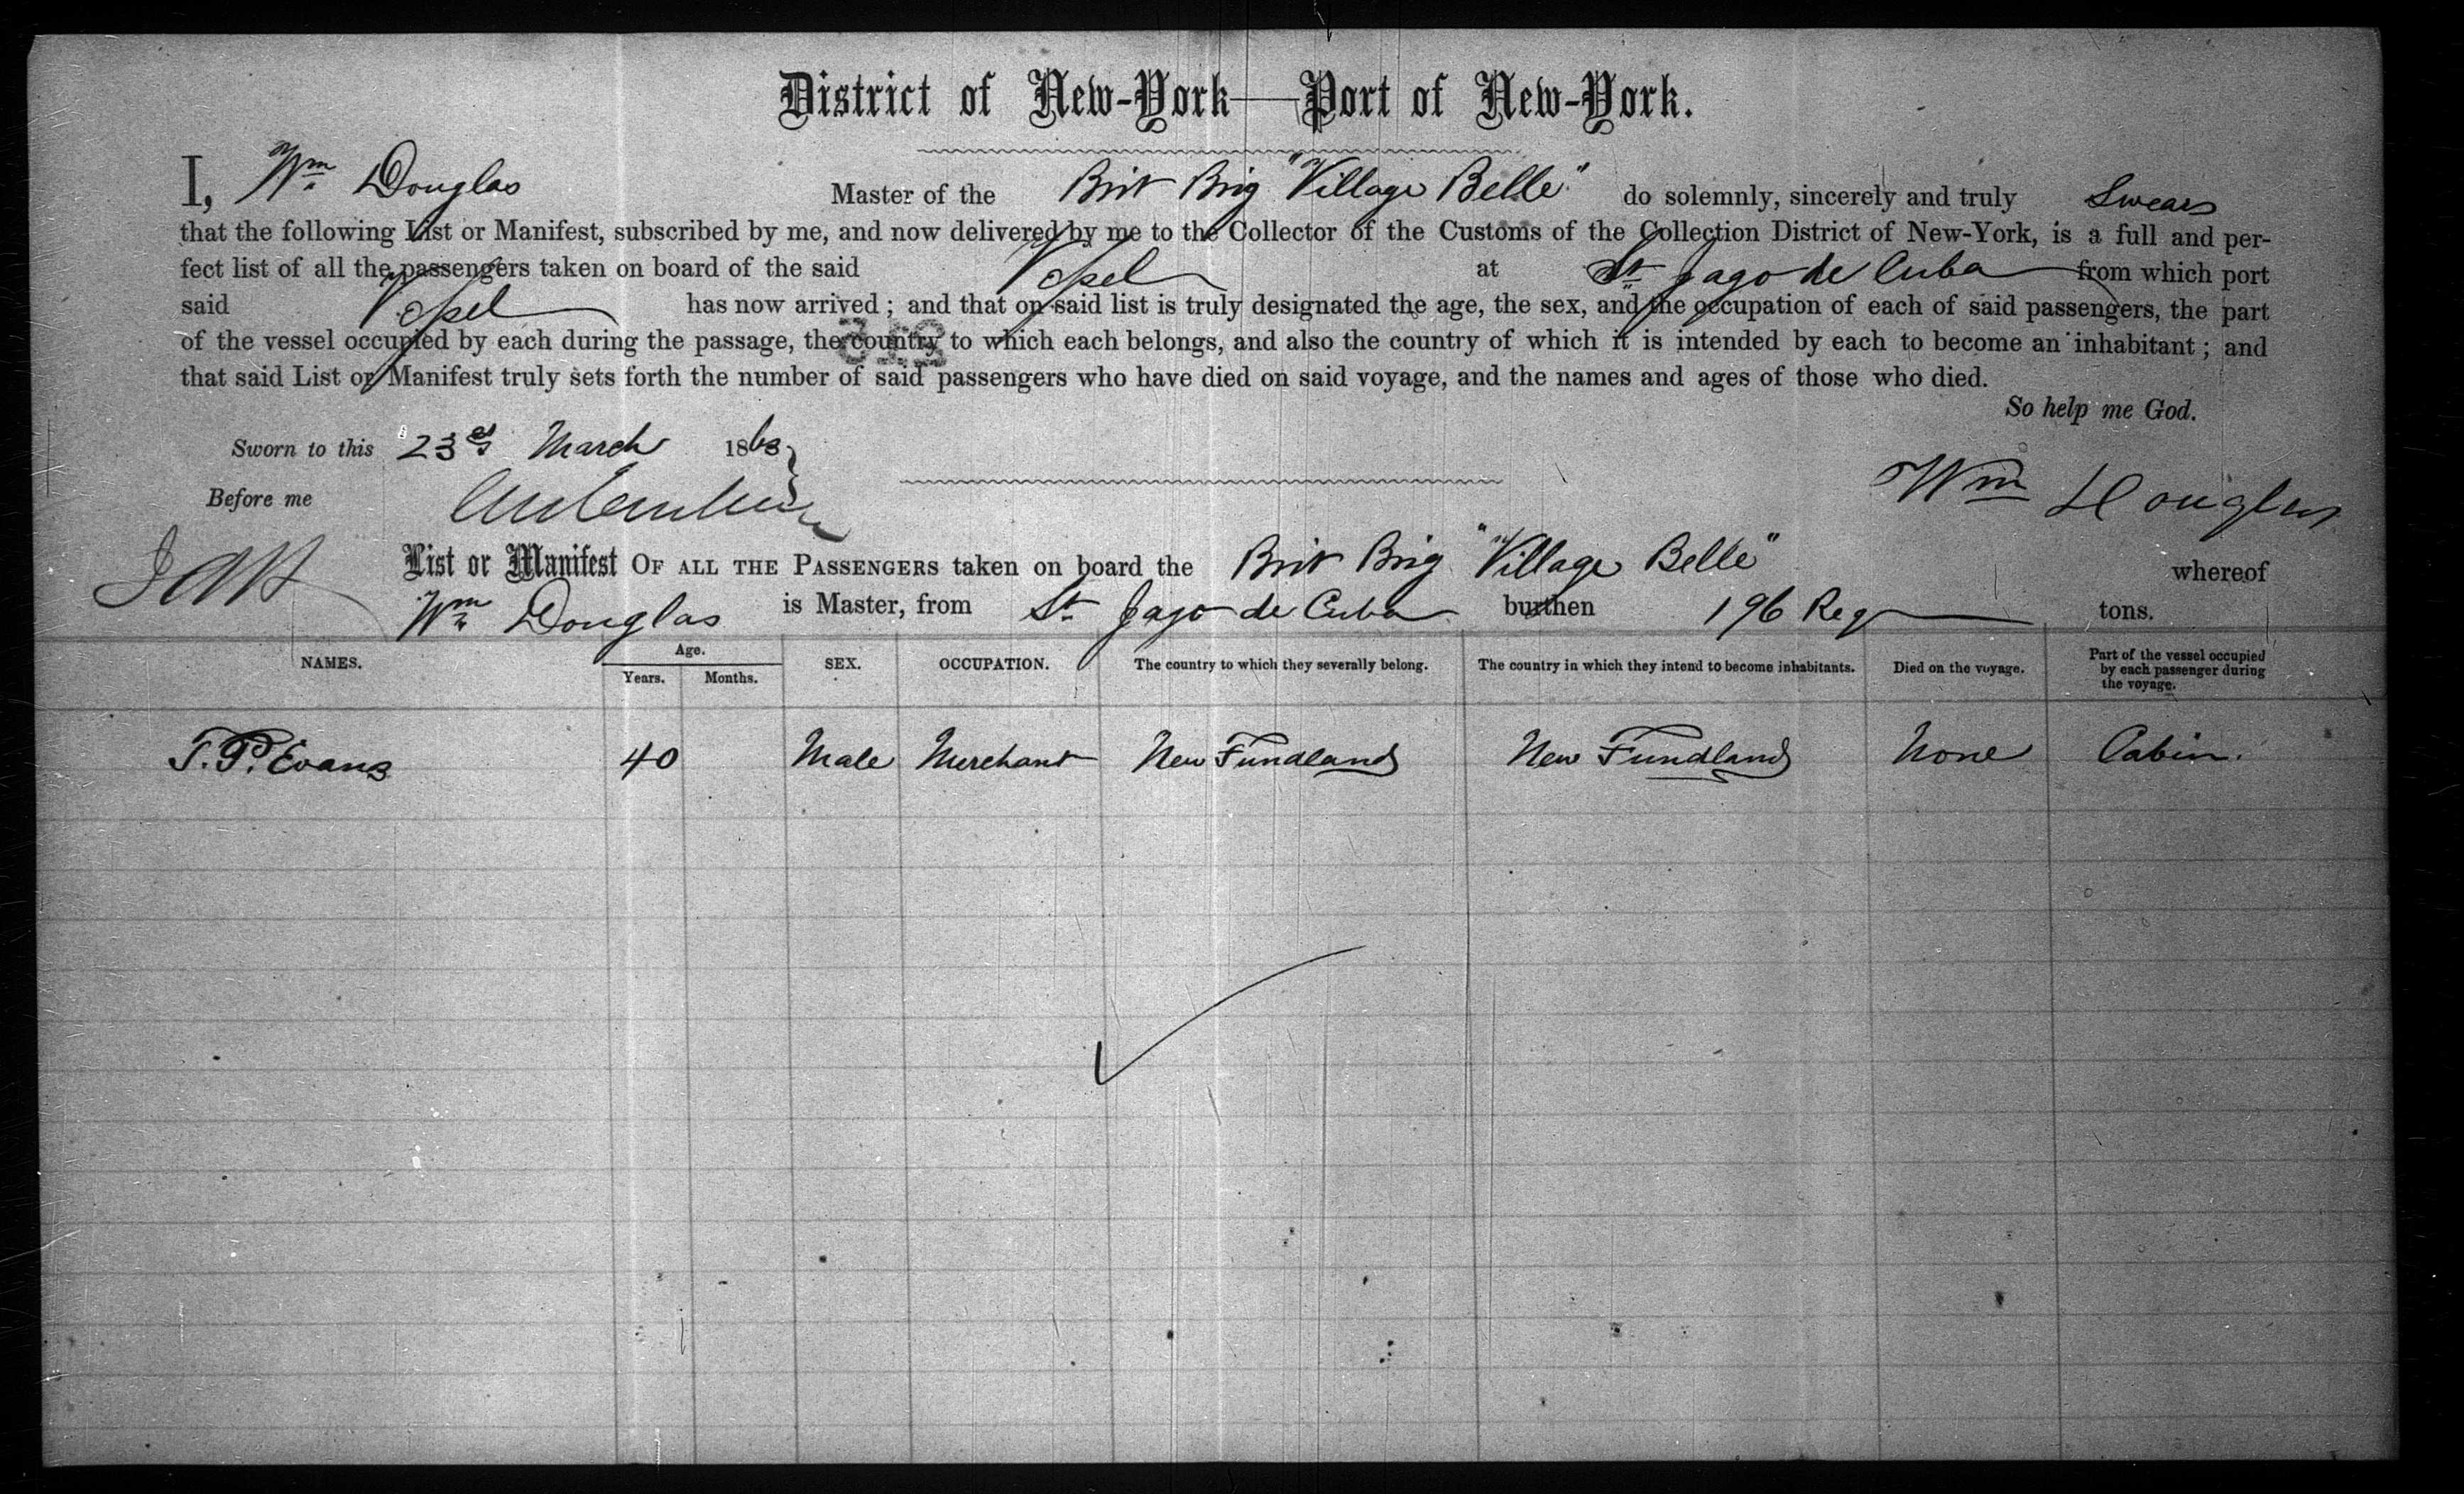 District of New-York—Port of New-York.
I, Wm Douglas Master of the Brit Brig "Village Belle" do solemnly, sincerely and truly Swear
that the following List or Manifest, subscribed by me, and now delivered by me to the Collector of the Customs of the Collection District of New-York, is a full and per-
fect list of all the passengers taken on board of the said Vessel at St Jago de Cuba from which port
said Vessel has now arrived; and that on said list is truly designated the age, the sex, and the occupation of each of said passengers, the part
of the vessel occupied by each during the passage, the country to which each belongs, and also the country of which it is intended by each to become an inhabitant; and
that said List or Manifest truly sets forth the number of said passengers who have died on said voyage, and the names and ages of those who died.
So help me God.
Sworn to this 23rd March 1863
Before me
Wm Douglas
List or Manifest OF ALL THE PASSENGERS taken on board the Brit Brig "Village Belle" whereof
Wm Douglas is Master, from St Jago de Cuba burthen 196 Reg tons.
NAMES. Age. Years. Months. SEX. OCCUPATION. The country to which they severally belong. The country in which they intend to become inhabitants. Died on the voyage. Part of the vessel occupied by each passenger during the voyage.
T. P. Evans 40 Male Merchant New Fundland New Fundland None Cabin.